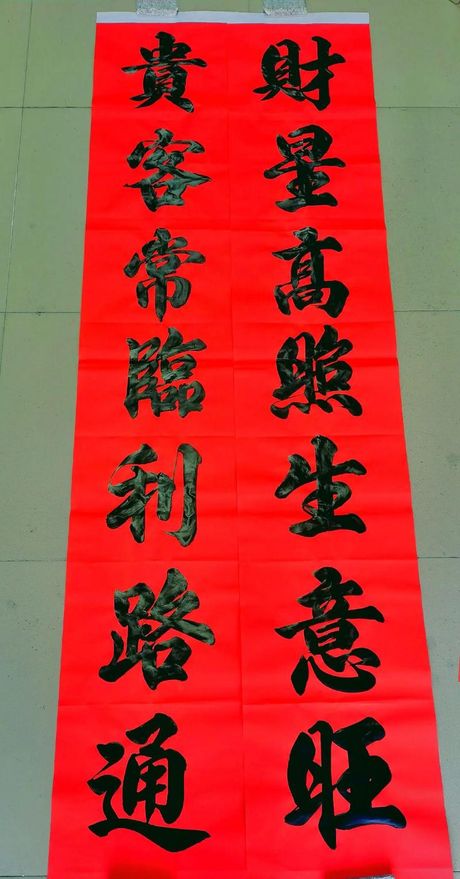 財星髙照生意旺
貴客常臨利路通